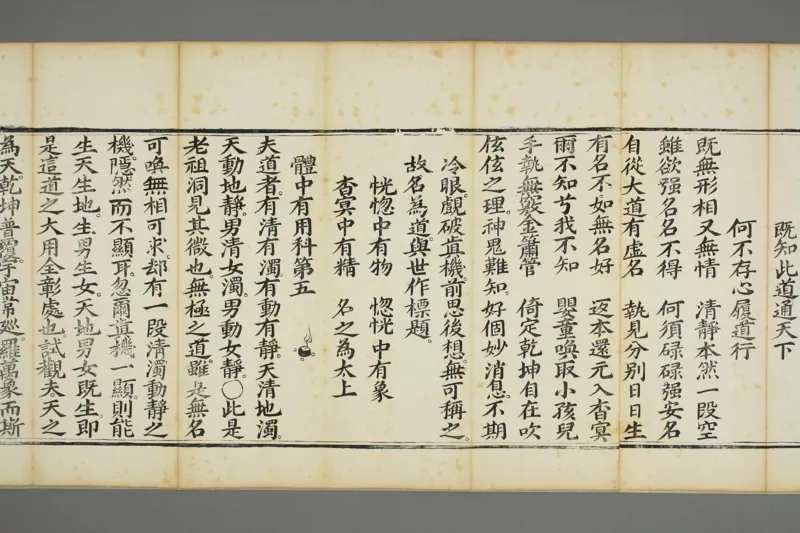 既知此道通天下
何不存心履道行
既無形相又無情 清靜本然一段空
雖欲强名名不得 何須碌碌强安名
自從大道有虛名 執見分別日日生
有名不如無名好 返本還元入杳冥
爾不知兮我不知 嬰童喚取小孩兒
手執無竅金簫管 倚定乾坤自在吹
伭伭之理。神鬼難知。好個妙消息。不期
冷眼覷破真機。前思後想。無可稱之。
故名為道與世作標題。
恍惚中有物 惚恍中有象
杳冥中有精 名之為太上
體中有用科第五
夫道者。有清有濁。有動有靜。天清地濁。
天動地靜。男清女濁。男動女靜。〇此是
老祖洞見其微也。無極之道。雖是無名
可喚無相可求。却有一段清濁動靜之
機。隱然而不顯耳。忽爾真機一顯。則能
生天生地。生男生女。天地男女既生。即
是這道之大用全彰處也試觀夫天之
為天。乾坤普覆。宇宙常廵。羅萬象而斯